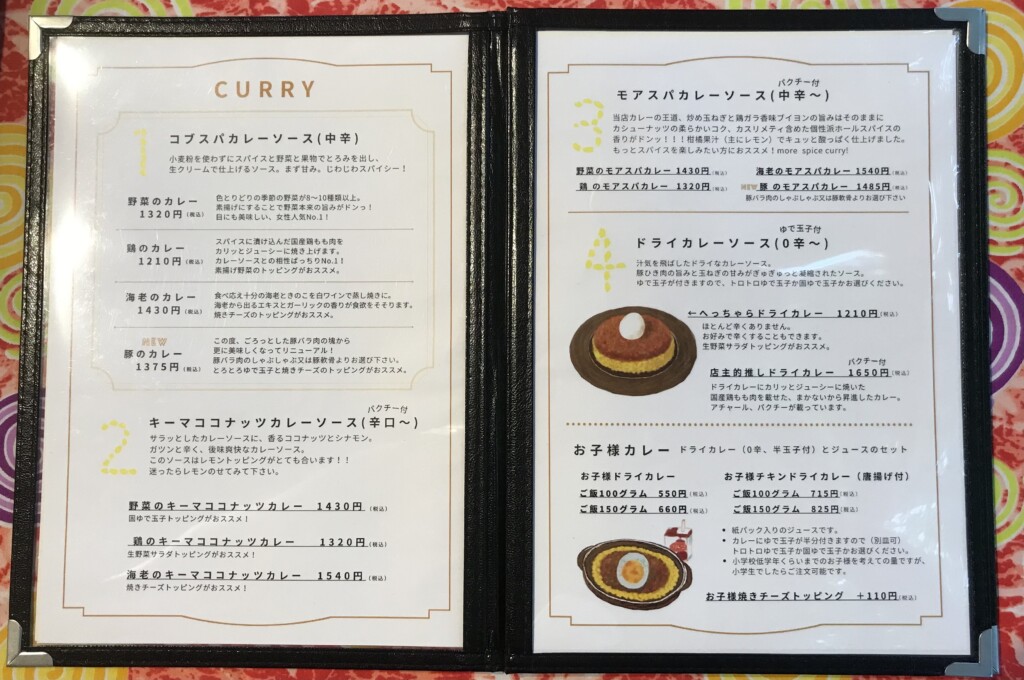 CURRY
1
コブスパカレーソース(中辛)
小麦粉を使わずにスパイスと野菜と果物でとろみを出し、
生クリームで仕上げるソース。まず甘み。じわじわスパイシー！
野菜のカレー
1320円(税込)
色とりどりの季節の野菜が8～10種類以上。
素揚げにすることで野菜本来の旨みがドンっ！
目にも美味しい、女性人気No.1！
鶏のカレー
1210円(税込)
スパイスに漬け込んだ国産鶏もも肉を
カリッとジューシーに焼き上げます。
カレーソースとの相性ばっちりNo.1！
素揚げ野菜のトッピングがおススメ。
海老のカレー
1430円(税込)
食べ応え十分の海老ときのこを白ワインで蒸し焼きに。
海老から出るエキスとガーリックの香りが食欲をそそります。
焼きチーズのトッピングがおススメ。
NEW
豚のカレー
1375円(税込)
この度、ごろっとした豚バラ肉の塊から
更に美味しくなってリニューアル！
豚バラ肉のしゃぶしゃぶ又は豚軟骨よりお選び下さい。
とろとろゆで玉子と焼きチーズのトッピングがおススメ。
2
パクチー付
キーマココナッツカレーソース(辛口～)
サラッとしたカレーソースに、香るココナッツとシナモン。
ガツンと辛く、後味爽快なカレーソース。
このソースはレモントッピングがとても合います！！
迷ったらレモンのせてみて下さい。
野菜のキーマココナッツカレー 1430円(税込)
固ゆで玉子トッピングがおススメ！
鶏のキーマココナッツカレー 1320円(税込)
生野菜サラダトッピングがおススメ！
海老のキーマココナッツカレー 1540円(税込)
焼きチーズトッピングがおススメ！
3
パクチー付
モアスパカレーソース(中辛～)
当店カレーの王道、炒め玉ねぎと鶏ガラ香味ブイヨンの旨みはそのままに
カシューナッツの柔らかいコク、カスリメティ含めた個性派ホールスパイスの
香りがドンッ！！！柑橘果汁（主にレモン）でキュッと酸っぱく仕上げました。
もっとスパイスを楽しみたい方におススメ！more spice curry!
野菜のモアスパカレー 1430円(税込)
海老のモアスパカレー 1540円(税込)
鶏 のモアスパカレー 1320円(税込)
NEW 豚 のモアスパカレー 1485円(税込)
豚バラ肉のしゃぶしゃぶ又は豚軟骨よりお選び下さい
4
ゆで玉子付
ドライカレーソース(0辛～)
汁気を飛ばしたドライなカレーソース。
豚ひき肉の旨みと玉ねぎの甘みがぎゅぎゅっと凝縮されたソース。
ゆで玉子が付きますので、トロトロゆで玉子か固ゆで玉子かお選びください。
←へっちゃらドライカレー 1210円(税込)
ほとんど辛くありません。
お好みで辛くすることもできます。
生野菜サラダトッピングがおススメ。
パクチー付
店主的推しドライカレー 1650円(税込)
ドライカレーにカリッとジューシーに焼いた
国産鶏もも肉を載せた、まかないから昇進したカレー。
アチャール、パクチーが載っています。
お子様カレー ドライカレー（0辛、半玉子付）とジュースのセット
お子様ドライカレー
ご飯100グラム 550円(税込)
ご飯150グラム 660円(税込)
お子様チキンドライカレー（唐揚げ付）
ご飯100グラム 715円(税込)
ご飯150グラム 825円(税込)
• 紙パック入りのジュースです。
• カレーにゆで玉子が半分付きますので（別皿可）
トロトロゆで玉子か固ゆで玉子かお選びください。
• 小学校低学年くらいまでのお子様を考えての量ですが、
小学生でしたらご注文可能です。
お子様焼きチーズトッピング ＋110円(税込)